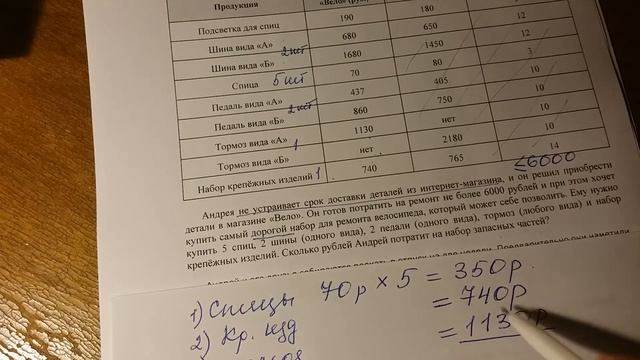 Продукция «Вело»
Подсветка для спиц 190 180
Шина вида «А» 680 650 12
Шина вида «Б» 2шт 1680 1450 12
Спица 5шт 70 80 3
Педаль вида «А» 437 405 10
Педаль вида «Б» 2шт 860 750 10
Тормоз вида «А» 1 1130 нет 10
Тормоз вида «Б» нет 2180 10
Набор крепёжных изделий 1 740 765 14
≤6000
Андрея не устраивает срок доставки детали из интернет-магазина, и он решил приобрести
детали в магазине «Вело». Он готов потратить на ремонт не более 6000 рублей и при этом хочет
купить самый дорогой набор для ремонта велосипеда, который может себе позволить. Ему нужно
купить 5 спиц, 2 шины (одного вида), 2 педали (одного вида), тормоз (любого вида) и набор
крепёжных изделий. Сколько рублей Андрей потратит на набор запасных частей?
1) Спицы 70р × 5 = 350р.
2) Кр. изд = 740р